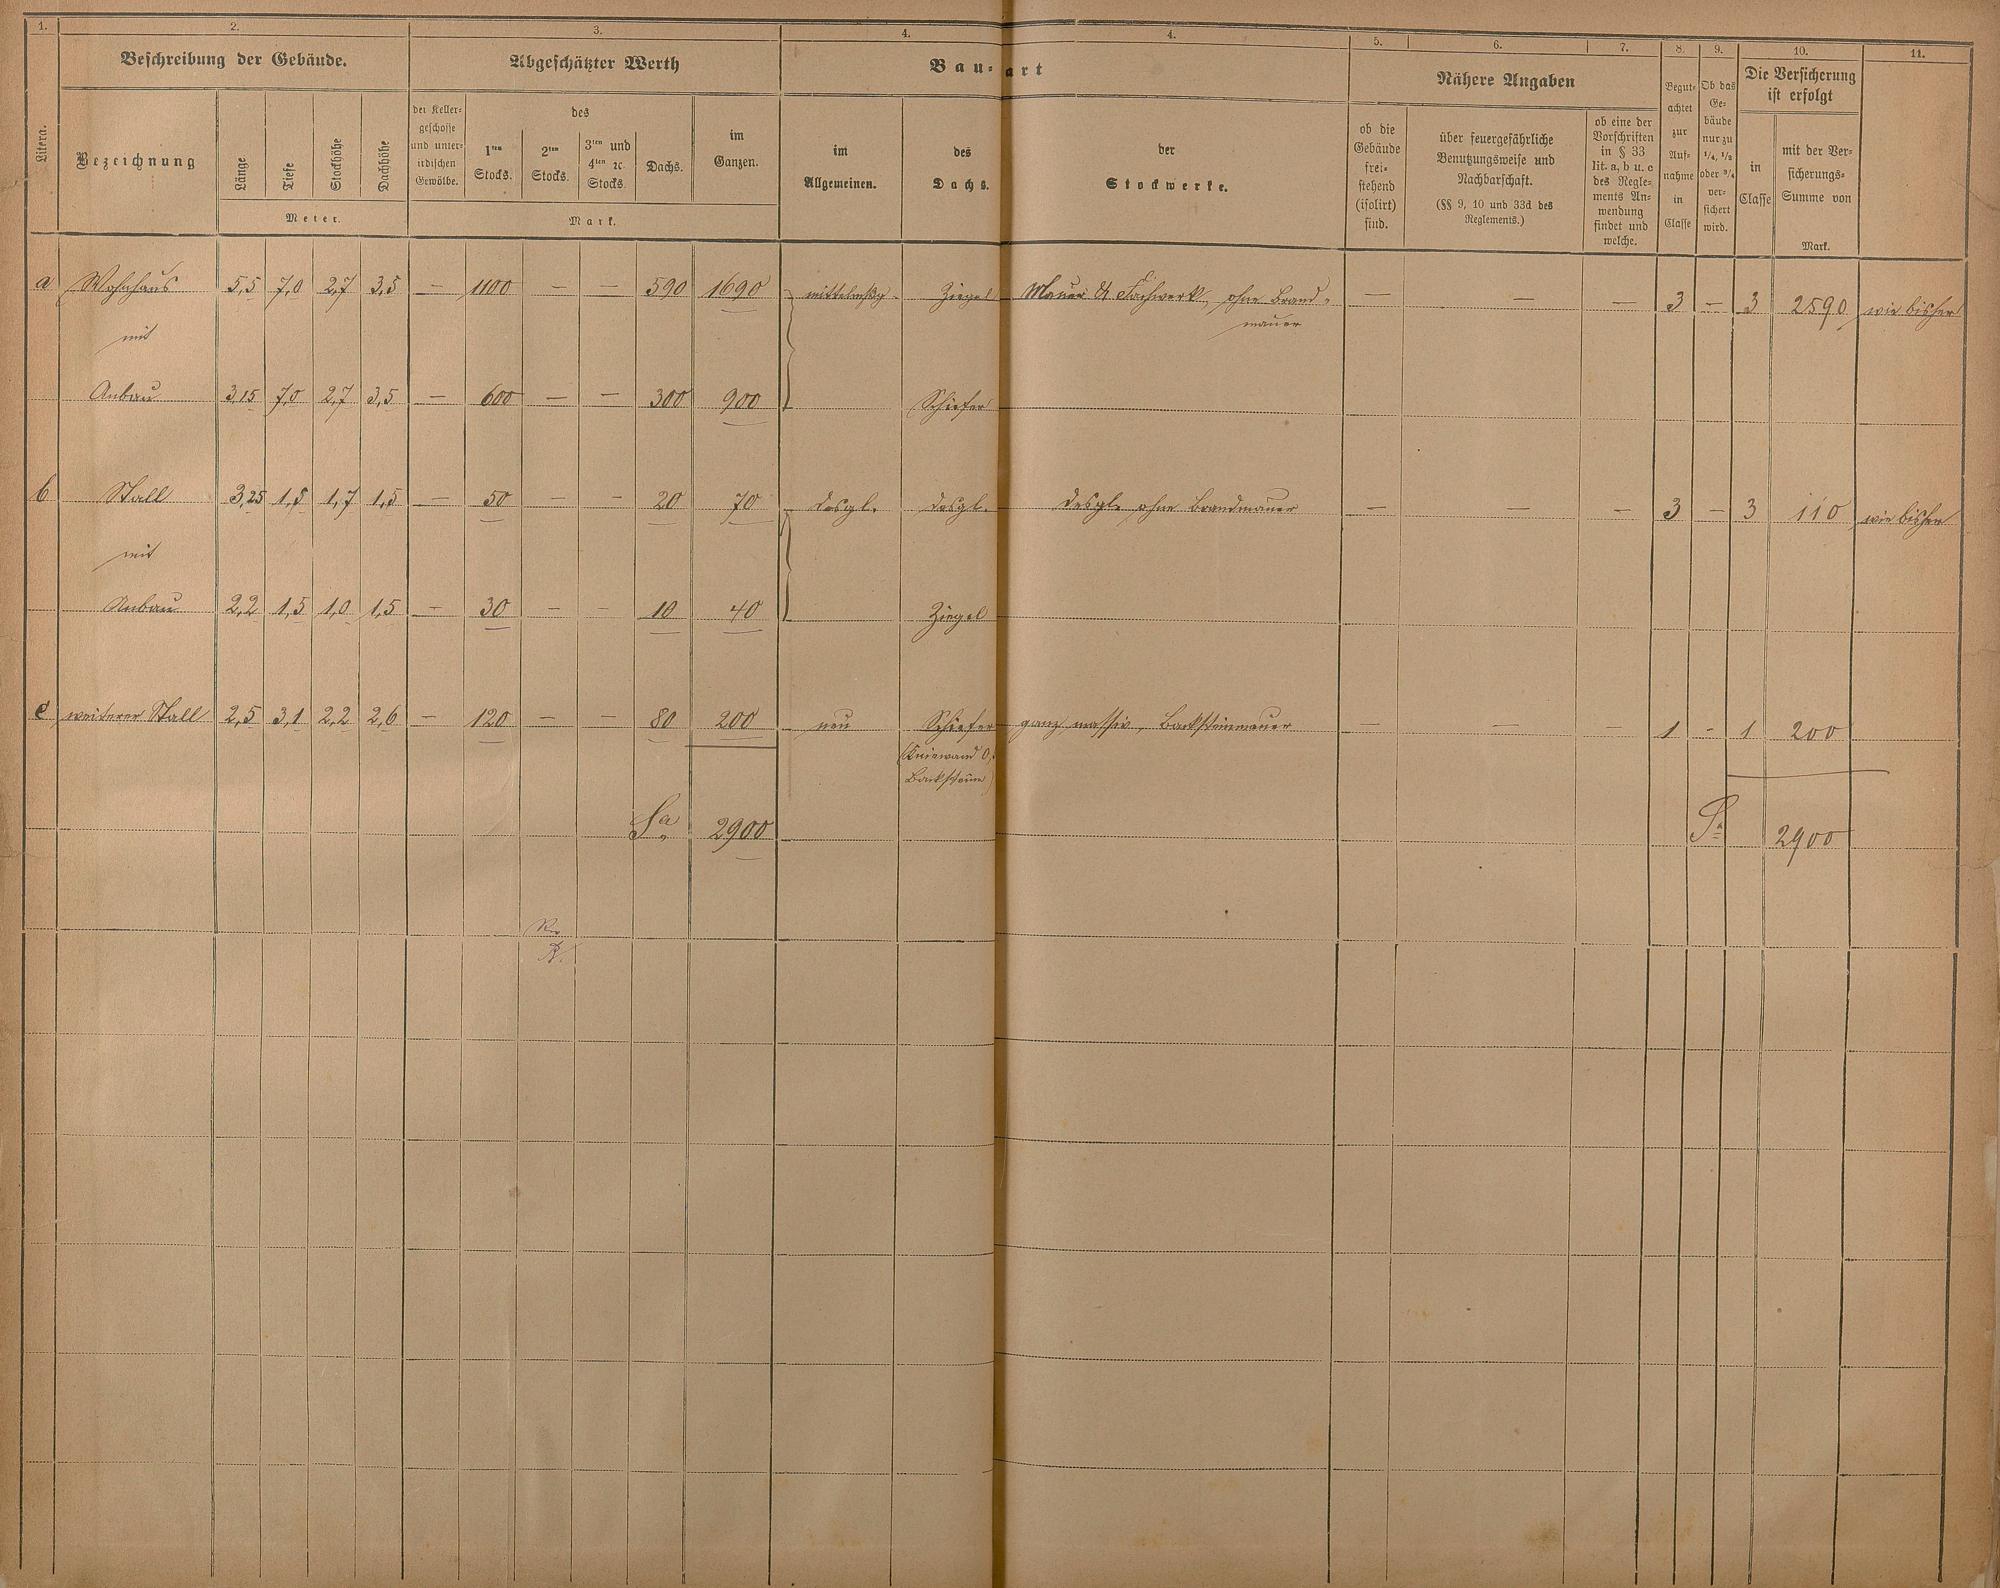 1. 2. 3. 4. 4. 5. 6. 7. 8. 9. 10. 11.
Litera.
Beschreibung der Gebäude.
Bezeichnung
Länge
Tiefe
Stockhöhe
Dachhöhe
Meter.
Abgeschätzter Werth
der Keller-
geschosse
und unter-
irdischen
Gewölbe.
des
1ten
Stocks.
2ten
Stocks.
3ten und
4ten ꝛc.
Stocks.
Dachs.
im
Ganzen.
Mark.
Bau-art
im
Allgemeinen.
des
Dachs.
der
Stockwerke.
Nähere Angaben
ob die
Gebäude
frei-
stehend
(isolirt)
sind.
über feuergefährliche
Benutzungsweise und
Nachbarschaft.
(§§ 9, 10 und 33d des
Reglements.)
ob eine der
Vorschriften
in § 33
lit. a, b u. c
des Regle-
ments An-
wendung
findet und
welche.
Begut-
achtet
zur
Auf-
nahme
in
Classe
Ob das
Ge-
bäude
nur zu
1/4, 1/2
oder 3/4
ver-
sichert
wird.
Die Versicherung
ist erfolgt
in
Classe
mit der Ver-
sicherungs-
Summe von
Mark.
a Wohnhaus 5,5 7,0 2,7 3,5 — 1100 — — 590 1690 mittelmßg. Ziegel Mauer & Fachwerk, ohne Brand- — — — 3 — 3 2590 wie bisher
mauer
mit
Anbau 3,15 7,0 2,7 3,5 — 600 — — 300 900 Schiefer
b Stall 3,25 1,5 1,7 1,5 — 50 — — 20 70 desgl. desgl. desgl. ohne Brandmauer — — — 3 — 3 110 wie bisher
mit
Anbau 2,2 1,5 1,0 1,5 — 30 — — 10 40 Ziegel
c weiterer Stall 2,5 3,1 2,2 2,6 — 120 — — 80 200 neu Schiefer ganz massiv, Backsteinmauer — — — 1 - 1 200
(Kniewand
Backsteine)
Sa 2900 Sa 2900